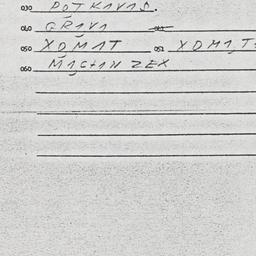 030 POTKAVAS.
040 GRAVA
050 XOMAT 051 XOMAT
060 MACHAN ZEX